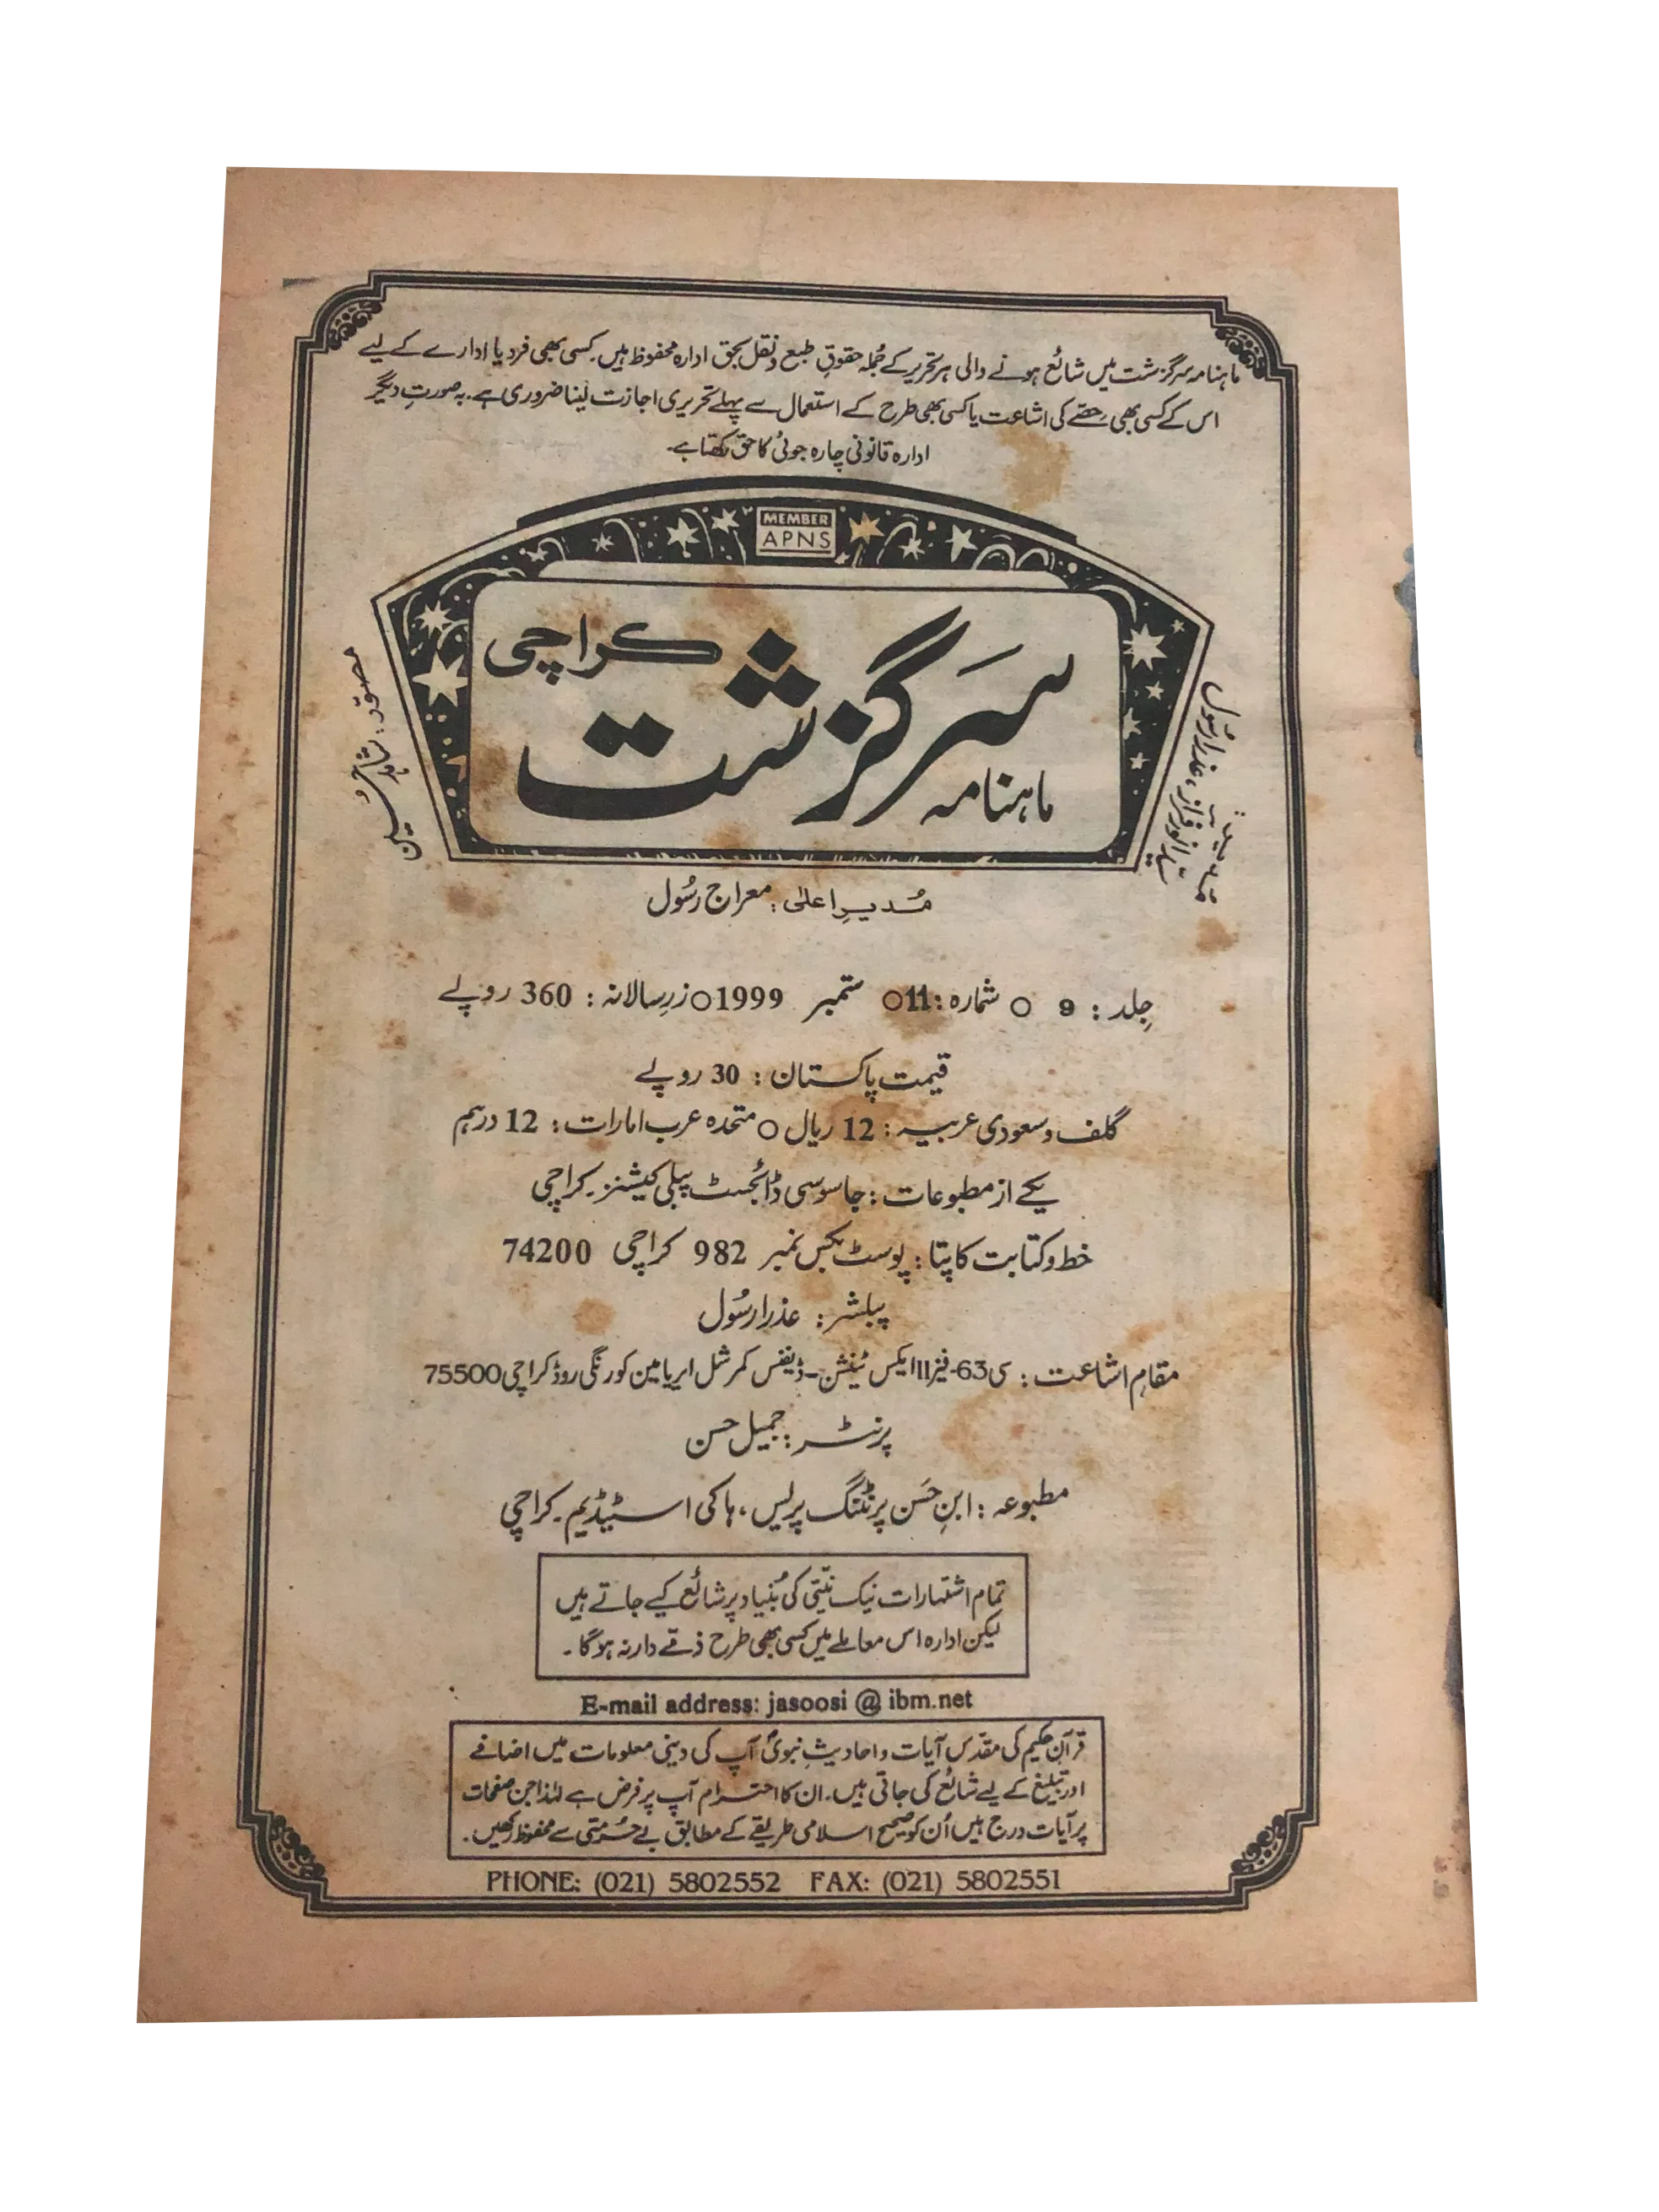 ماہنامہ سرگزشت میں شائع ہونے والی ہر تحریر کے جُملہ حقوقِ طبع و نقل بحق ادارہ محفوظ ہیں۔ کسی بھی فرد یا ادارے کے لیے
اس کے کسی بھی حصّے کی اشاعت یا کسی بھی طرح کے استعمال سے پہلے تحریری اجازت لینا ضروری ہے۔ بہ صورتِ دیگر
ادارہ قانونی چارہ جوئی کا حق رکھتا ہے۔
MEMBER
APNS
کراچی
سَرگزشت
ماہنامہ
مصوّر: شاہد حُسین
انور فراز، عذرا رسُول
مُدیرِ اعلیٰ: معراج رسُول
جِلد: 9 ○ شمارہ: 11 ○ ستمبر 1999 ○ زرِ سالانہ: 360 روپے
قیمت پاکستان: 30 روپے
گلف و سعودی عربیہ: 12 ریال ○ متحدہ عرب امارات: 12 درہم
یکے از مطبوعات: جاسوسی ڈائجسٹ پبلی کیشنز۔ کراچی
خط و کتابت کا پتا: پوسٹ بکس نمبر 982 کراچی 74200
پبلشر: عذرا رسُول
مقامِ اشاعت: سی 63- فیز II ایکس ٹینشن- ڈیفنس کمرشل ایریا مین کورنگی روڈ کراچی 75500
پرنٹر: جمیل حسن
مطبوعہ: ابنِ حَسن پرنٹنگ پریس، ہاکی اسٹیڈیم۔ کراچی
تمام اشتہارات نیک نیّتی کی بُنیاد پر شائع کیے جاتے ہیں
لیکن ادارہ اس معاملے میں کسی بھی طرح ذمّے دار نہ ہو گا۔
E-mail address: jasoosi @ ibm.net
قرآنِ حکیم کی مقدس آیات و احادیثِ نبویؐ آپ کی دینی معلومات میں اضافے
اور تبلیغ کے لیے شائع کی جاتی ہیں۔ ان کا احترام آپ پر فرض ہے لہٰذا جن صفحات
پر آیات درج ہیں اُن کو صحیح اسلامی طریقے کے مطابق بے حُرمتی سے محفوظ رکھیں۔
PHONE: (021) 5802552 FAX: (021) 5802551